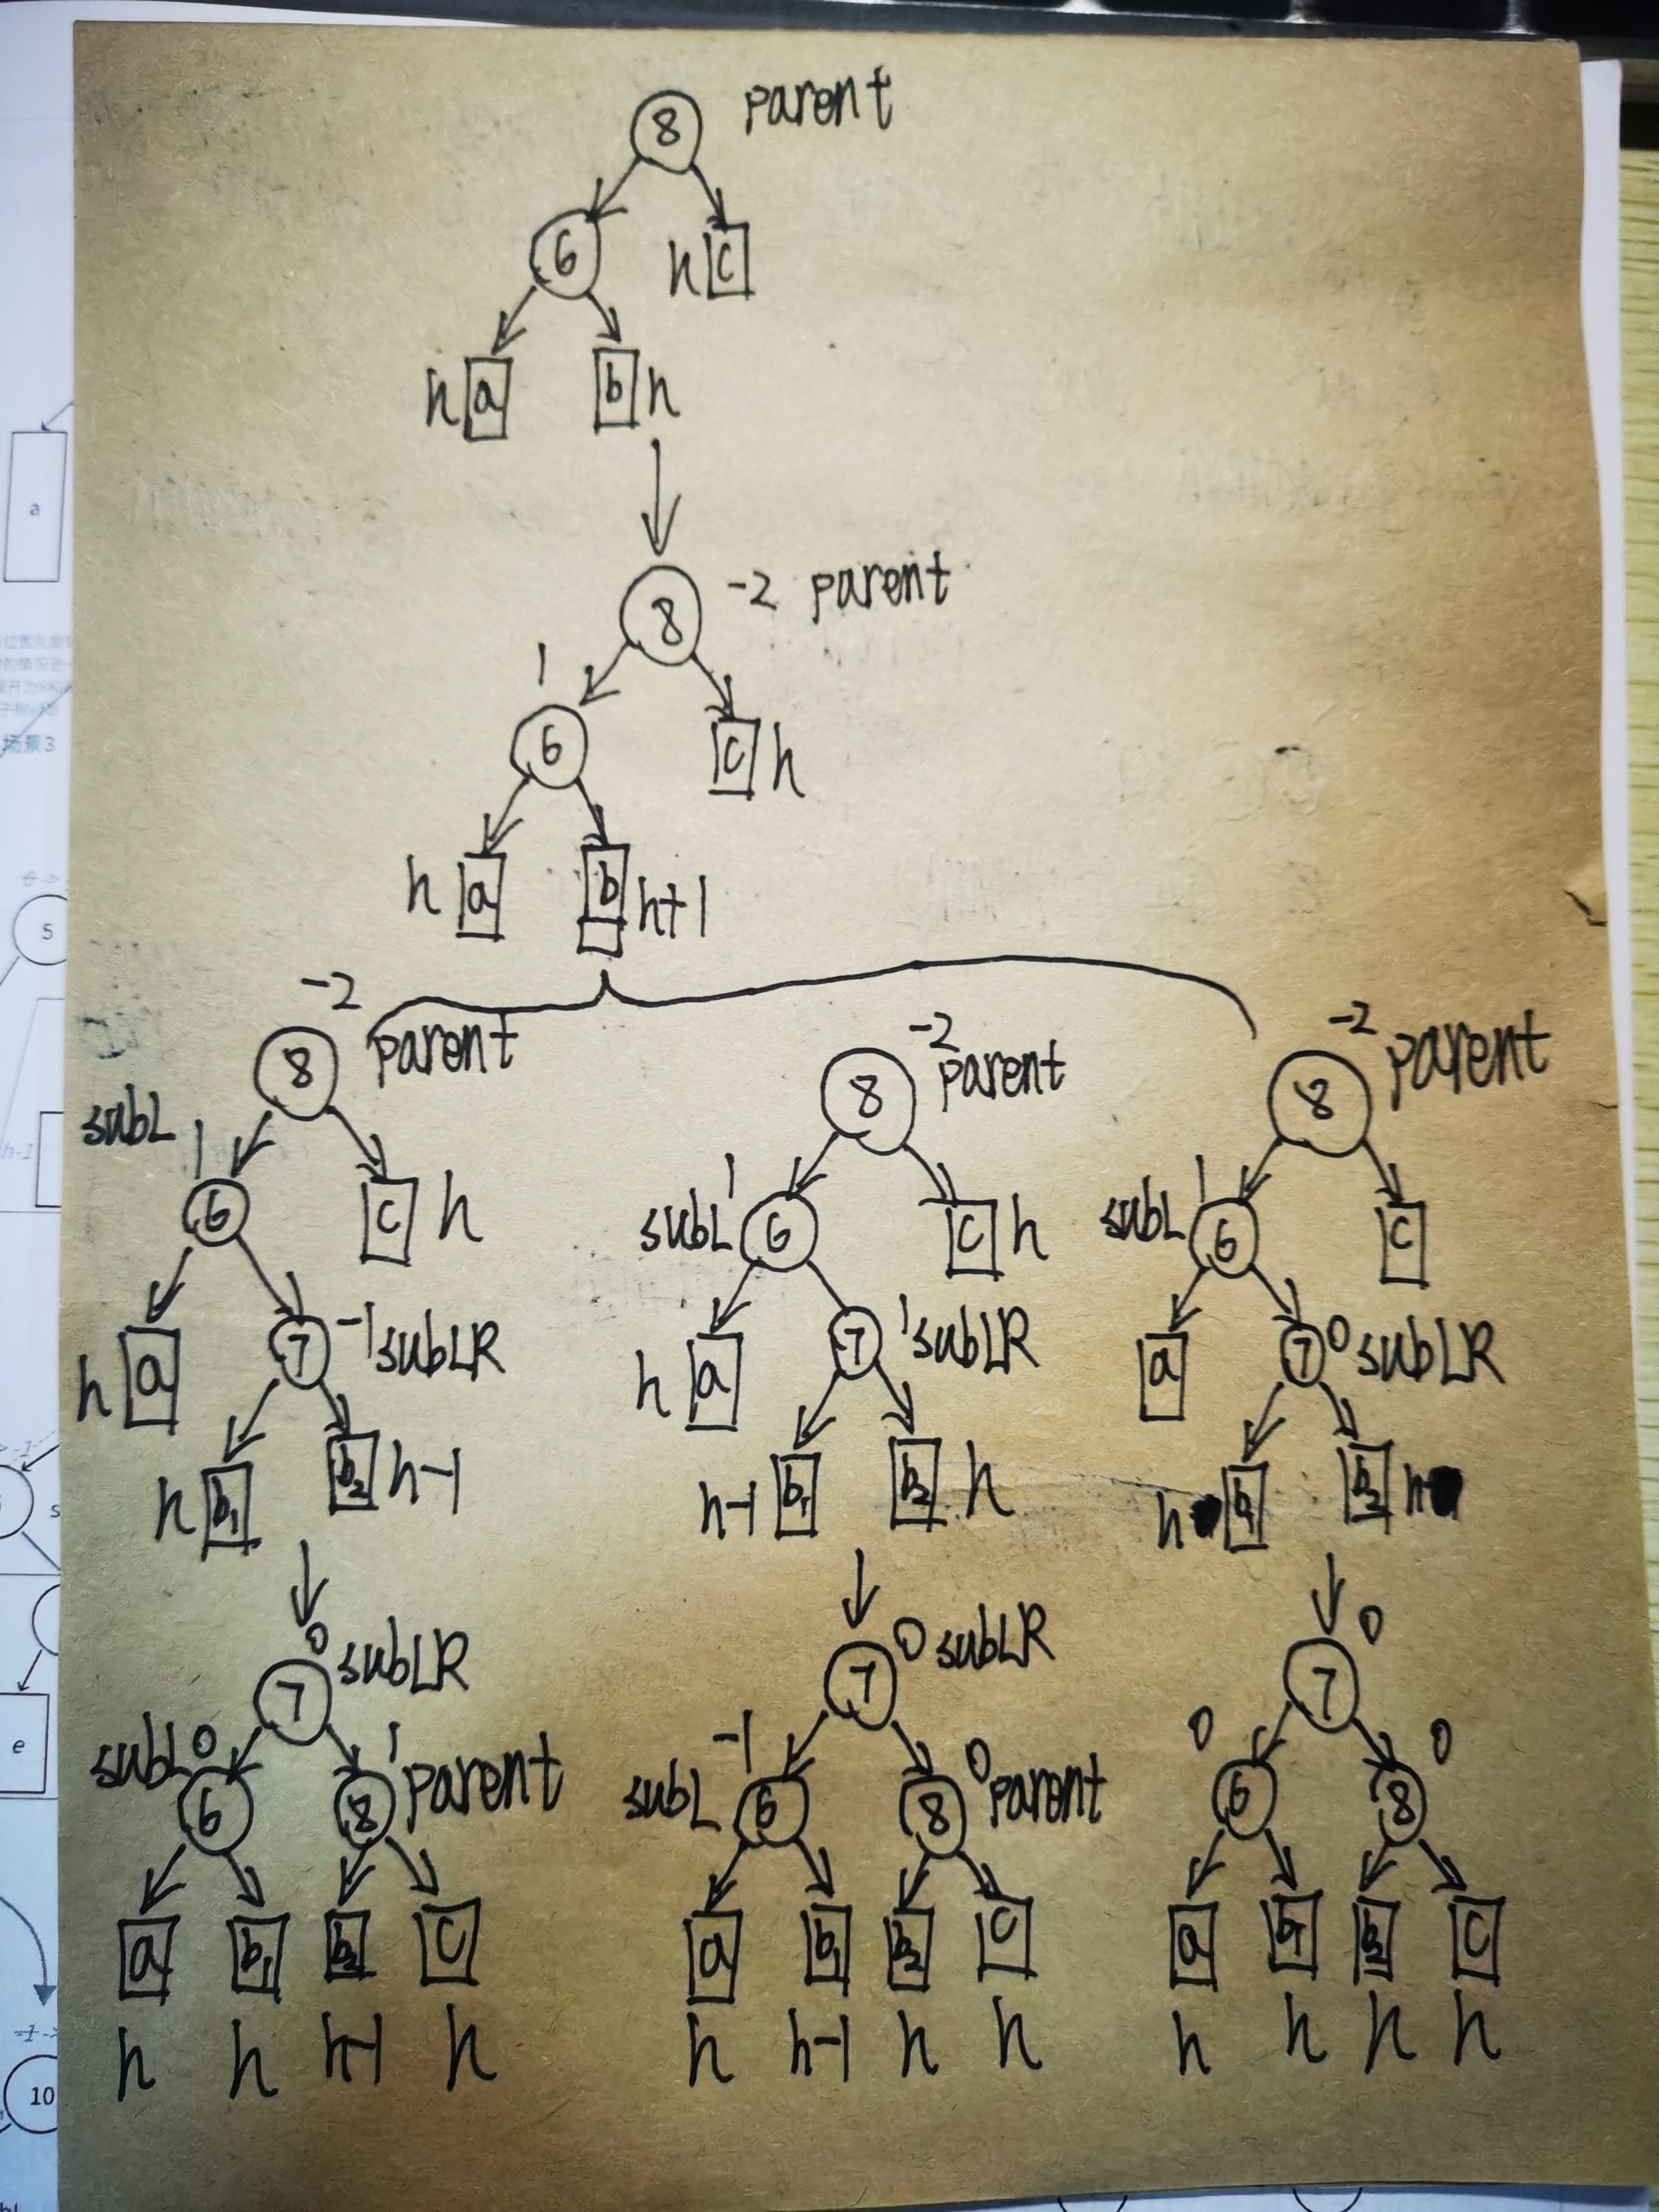 8 parent
6 h c
h a b h
8 -2 parent
1
6 c h
h a b h+1
-2
8 parent
subL 1
6 c h
h a 7 -1 subLR
h b1 b2 h-1
0
7 subLR
subL 0 6 1 8 parent
a b1 b2 c
h h h-1 h
-2
8 parent
1
subL 6 c h
h a 7 1 subLR
h-1 b1 b2 h
7 0 subLR
-1 0
subL 6 8 parent
a b1 b2 c
h h-1 h h
-2
8 parent
1
subL 6 c
a 7 0 subLR
h b1 b2 h
0
7
0 0
6 8
a b1 b2 c
h h h h
a
场景3
5
h-1
s
e
10